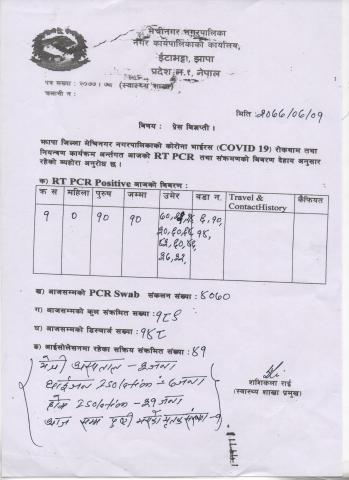 मेचीनगर नगरपालिका
नगर कार्यपालिकाको कार्यालय,
ईटाभट्टा, झापा
प्रदेश नं.१, नेपाल
पत्र संख्या : २०७७।७८ (स्वास्थ्य शाखा)
चलानी नं :
मिति :२०७७/०६/०१
विषय : प्रेस विज्ञप्ती।
झापा जिल्ला मेचिनगर नगरपालिकाको कोरोना भाईरस (COVID 19) रोकथाम तथा
नियन्त्रण कार्यक्रम अर्न्तगत आजको RT PCR तथा संक्रमणको बिबरण देहाय अनुसार
रहेको व्यहोरा अनुरोध छ।
क) RT PCR Positive आजको बिबरण :
क्र स महिला पुरुष जम्मा उमेर वडा न. Travel & ContactHistory कैफियत
१ ० १० १० ६,१०,
१४,
ख) आजसम्मको PCR Swab संकलन संख्या : ४०७०
ग) आजसम्मको कुल संक्रमित सख्या :१८९
घ) आजसम्मको डिस्चार्ज संख्या : १४८
ङ) आईसोलेसनमा रहेका सक्रिय संक्रमित संख्या : ४१
मेची अस्पताल -
Isolation
होम Isolation -
आज सम्म
शशिकला राई
(स्वास्थ्य शाखा प्रमुख)